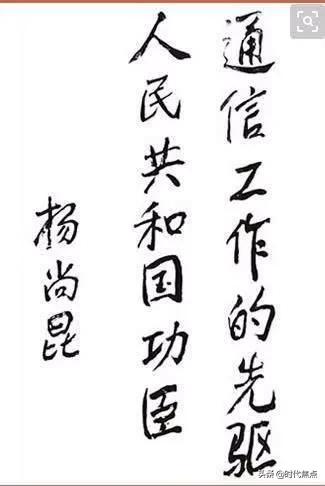 通信工作的先驱
人民共和国功臣
杨尚昆
头条@时代焦点